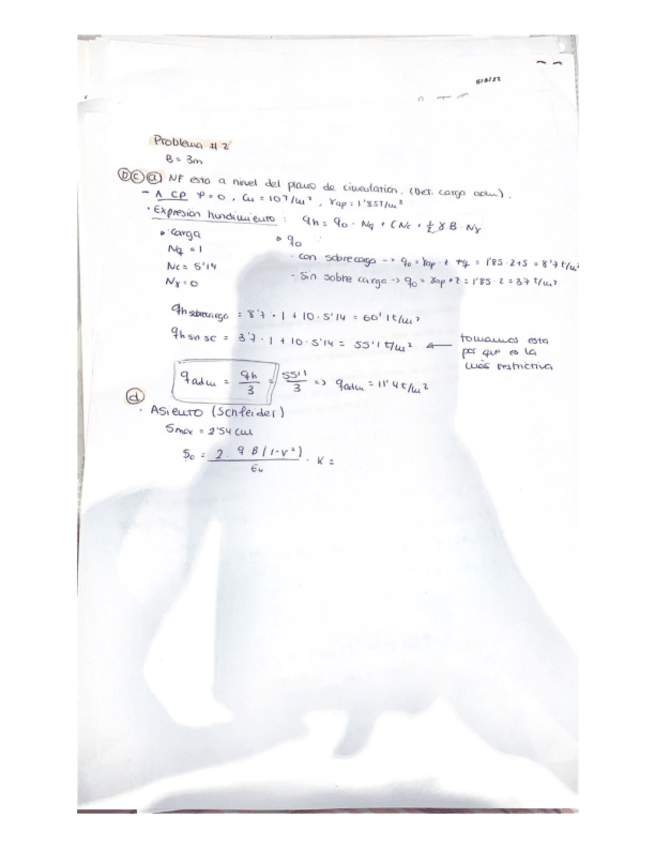 5/8/27
Problema #2
B = 3m
ⓑ ⓒ ⓐ NF esta a nivel del plano de cimentacion. (Det. carga adm).
- A CP φ = 0, Cu = 10 t/m², γap = 1'85 t/m³
· Expresión hundimiento: qh = q0 · Nq + C Nc + 1/2 γ B · Nγ
• Carga
• q0
Nq = 1
- con sobrecarga --> q0 = γap · z + q = 1'85 · 2 + 5 = 8'7 t/m²
Nc = 5'14
- Sin sobre carga -> q0 = γap * z = 1'85 · 2 = 3'7 t/m²
Nγ = 0
qh sobrecarga = 8'7 · 1 + 10 · 5'14 = 60'1 t/m²
qh sin sc = 3'7 · 1 + 10 · 5'14 = 55'1 t/m² ← tomamos esta
por que es la
más restrictiva
qadm = qh/3 = 55'1/3 => qadm = 11'4 t/m²
ⓓ
· Asiento (Schleider)
Smax = 2'54 cm
S0 = 2 · q · B (1-ν²)/Eu · K =